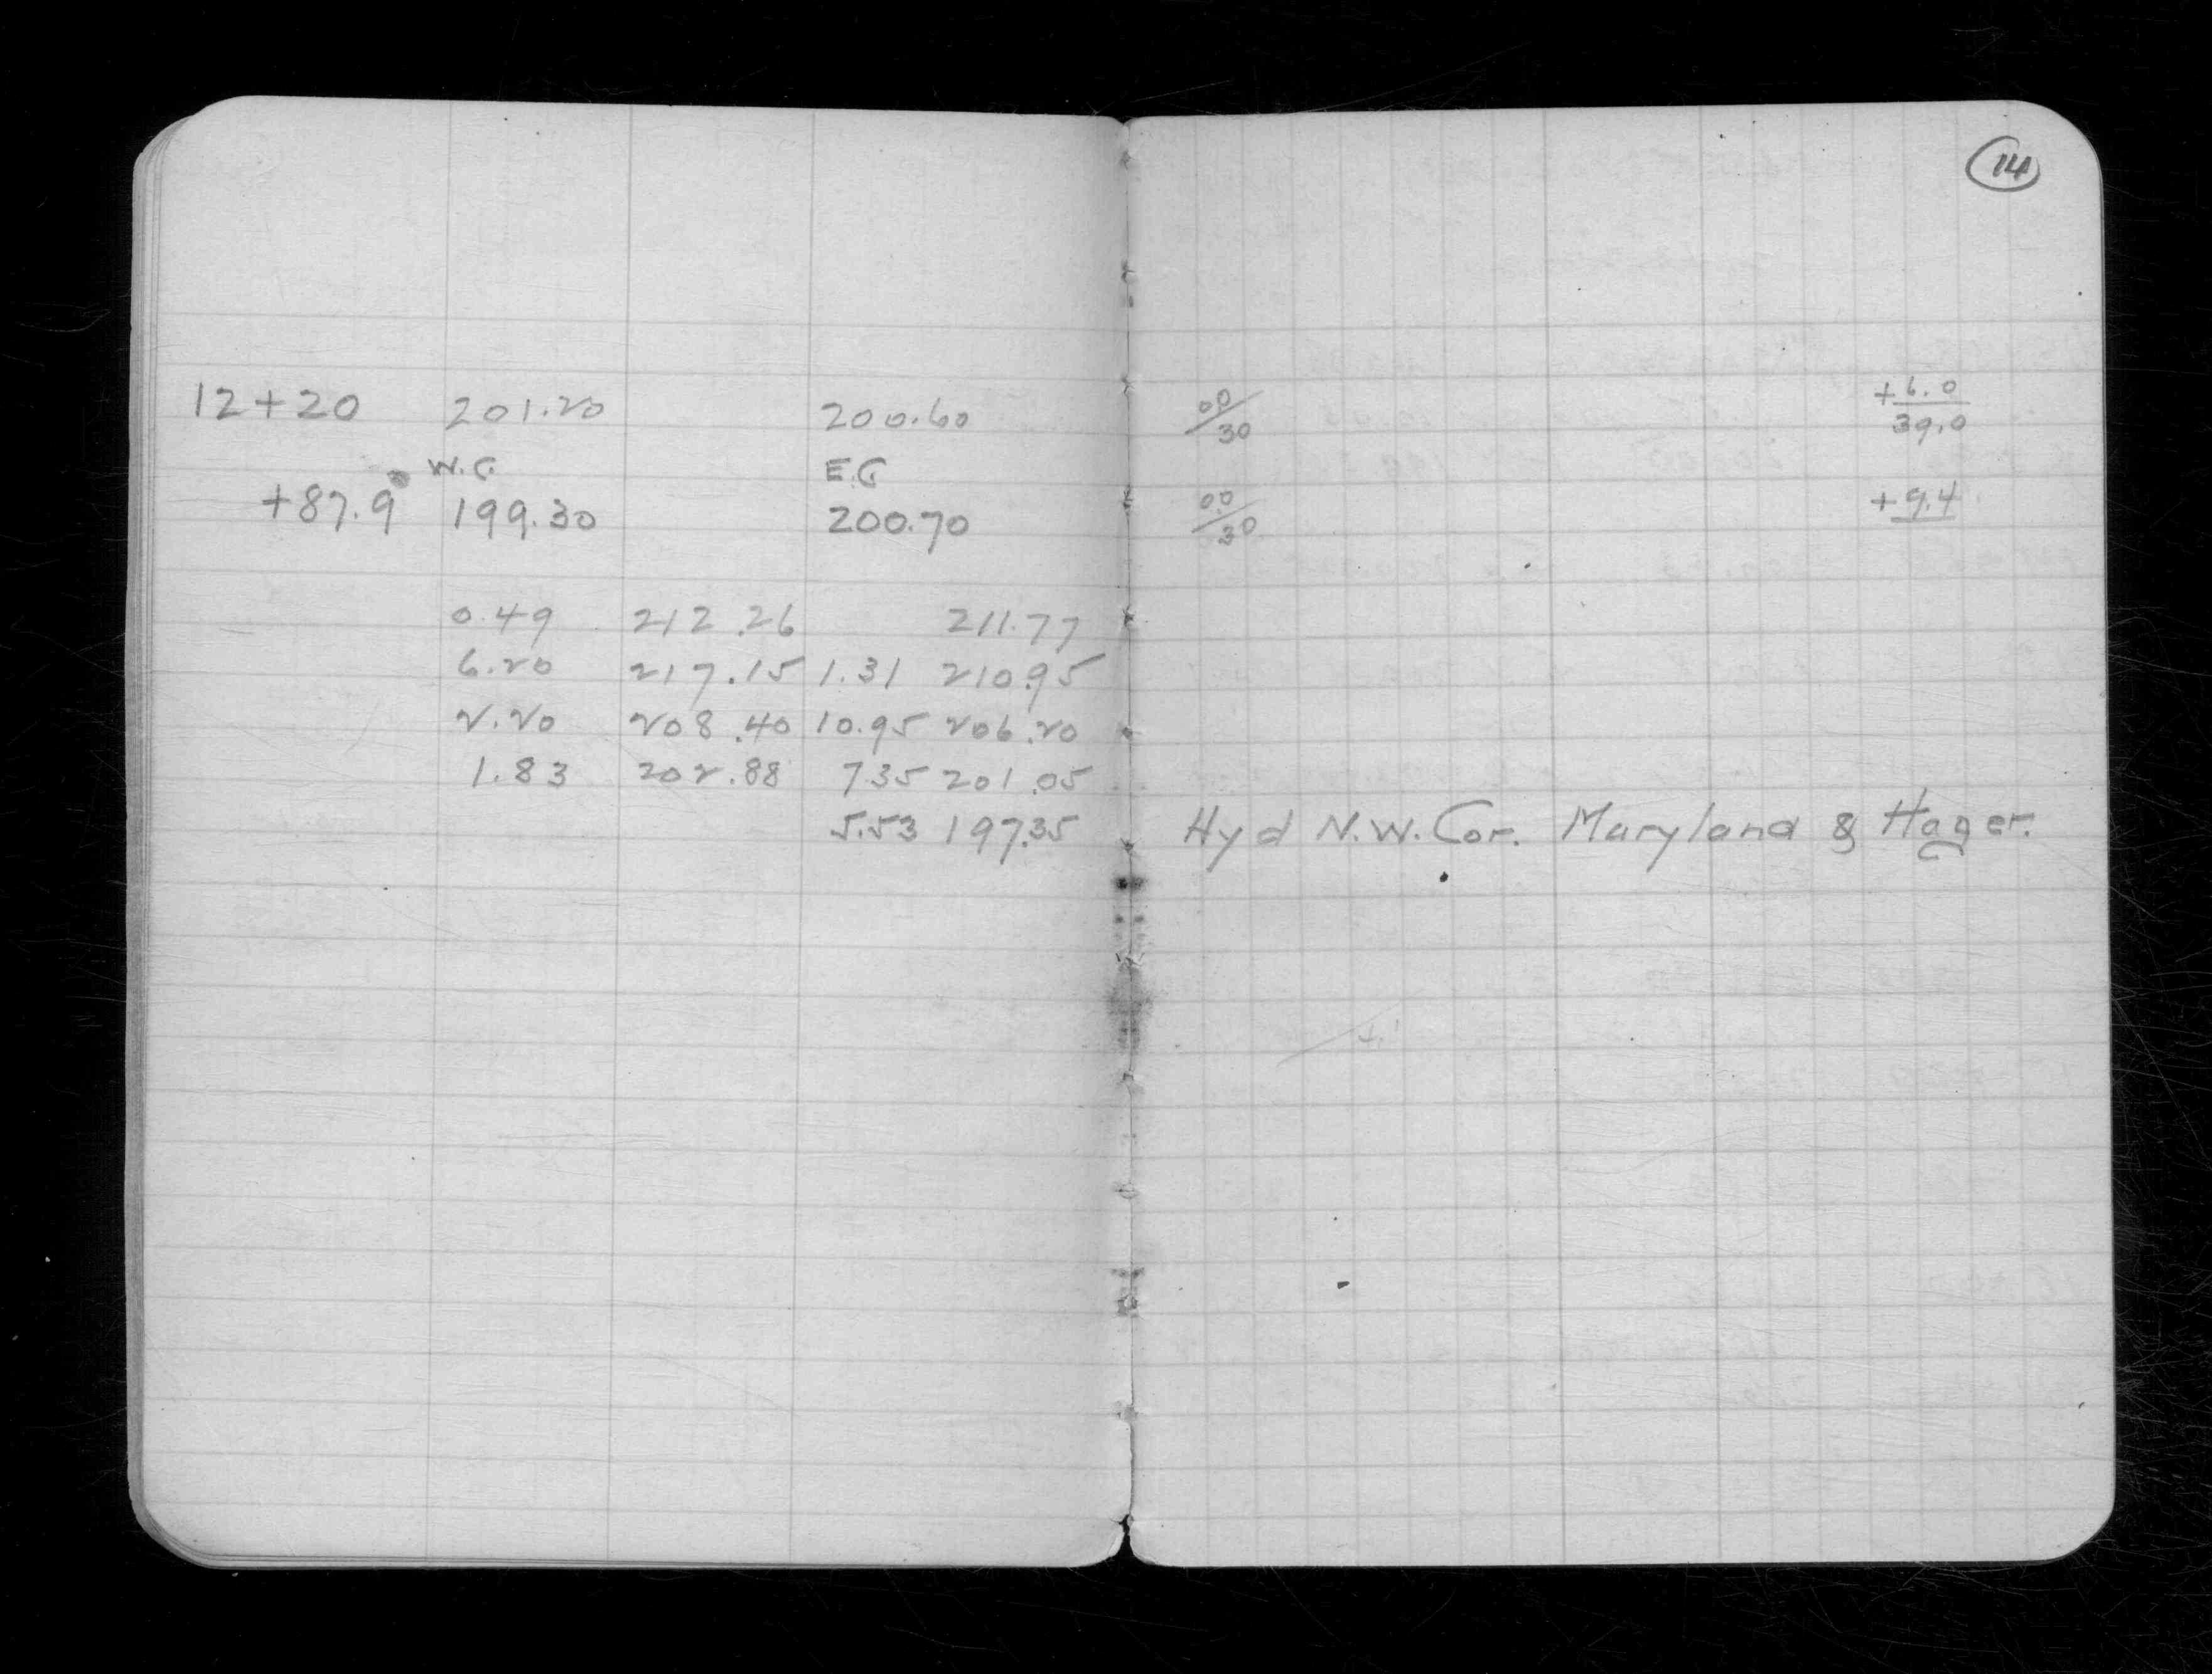 14
12+20 201.20 200.60 00/30 +6.0/39.0
W.C. E.C.
+87.9 199.30 200.70 0.0/30 +9.4
0.49 212.26 211.77
6.20 217.15 1.31 210.95
2.20 208.40 10.95 206.20
1.83 202.88 7.35 201.05
5.53 197.35 Hyd N.W. Cor. Maryland & Hager.